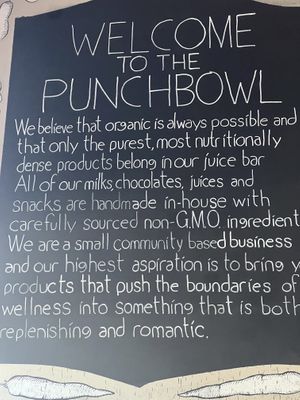 WELCOME
TO THE
PUNCHBOWL
We believe that organic is always possible and
that only the purest, most nutritionally
dense products belong in our juice bar
All of our milks, chocolates, juices and
snacks are handmade in-house with
carefully sourced non-G.M.O. ingredient
We are a small community based business
and our highest aspiration is to bring y
products that push the boundaries of
wellness into something that is both
replenishing and romantic.